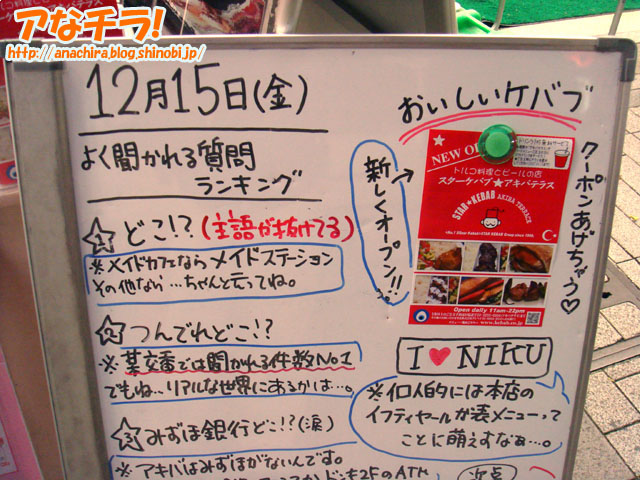 アなチラ!
http://anachira.blog.shinobi.jp/
12月15日(金)
よく聞かれる質問
ランキング
どこ!?(主語が抜けてる)
※メイドカフェならメイドステーション
その他なら…ちゃんと云ってね。
つんでれどこ!?
※某交番では聞かれる件数No.1
でもね…リアルな世界にあるかは…。
みずほ銀行どこ!?(涙)
※アキバはみずほがないんです。
ドンキ2FのATM
おいしいケバブ
新しくオープン!!
クーポンあげちゃう♡
NEW
トルコ料理とビールの店
スターケバブ★アキバテラス
STAR★KEBAB AKIBA TERRACE
Open daily 11am-22pm
www.kebab.co.jp
I♥NIKU
※個人的には本店の
イフティヤールが裏メニューって
ことに萌えすなぁ…。